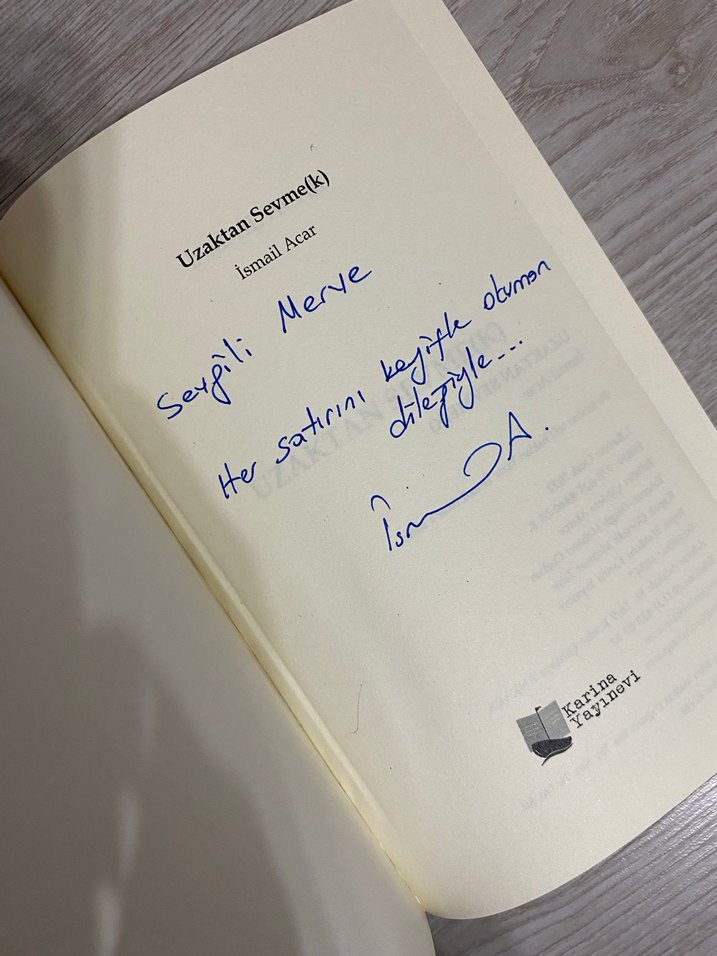 Uzaktan Sevme(k)
İsmail Acar
Sevgili Merve
Her satırını keyifle okuman
dileğiyle...
İsm A.
Karina
Yayınevi
UZAKTAN SEVME(K)